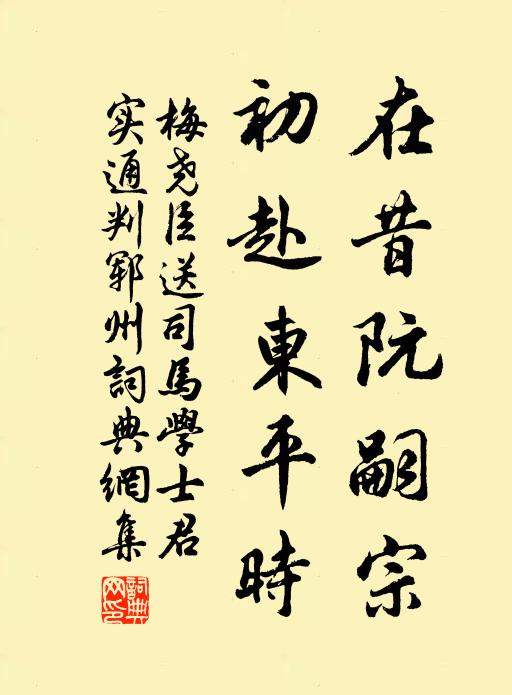 在昔阮嗣宗
初赴東平時
梅尧臣送司馬學士君
实通判郓州詞典網集
詞典網印